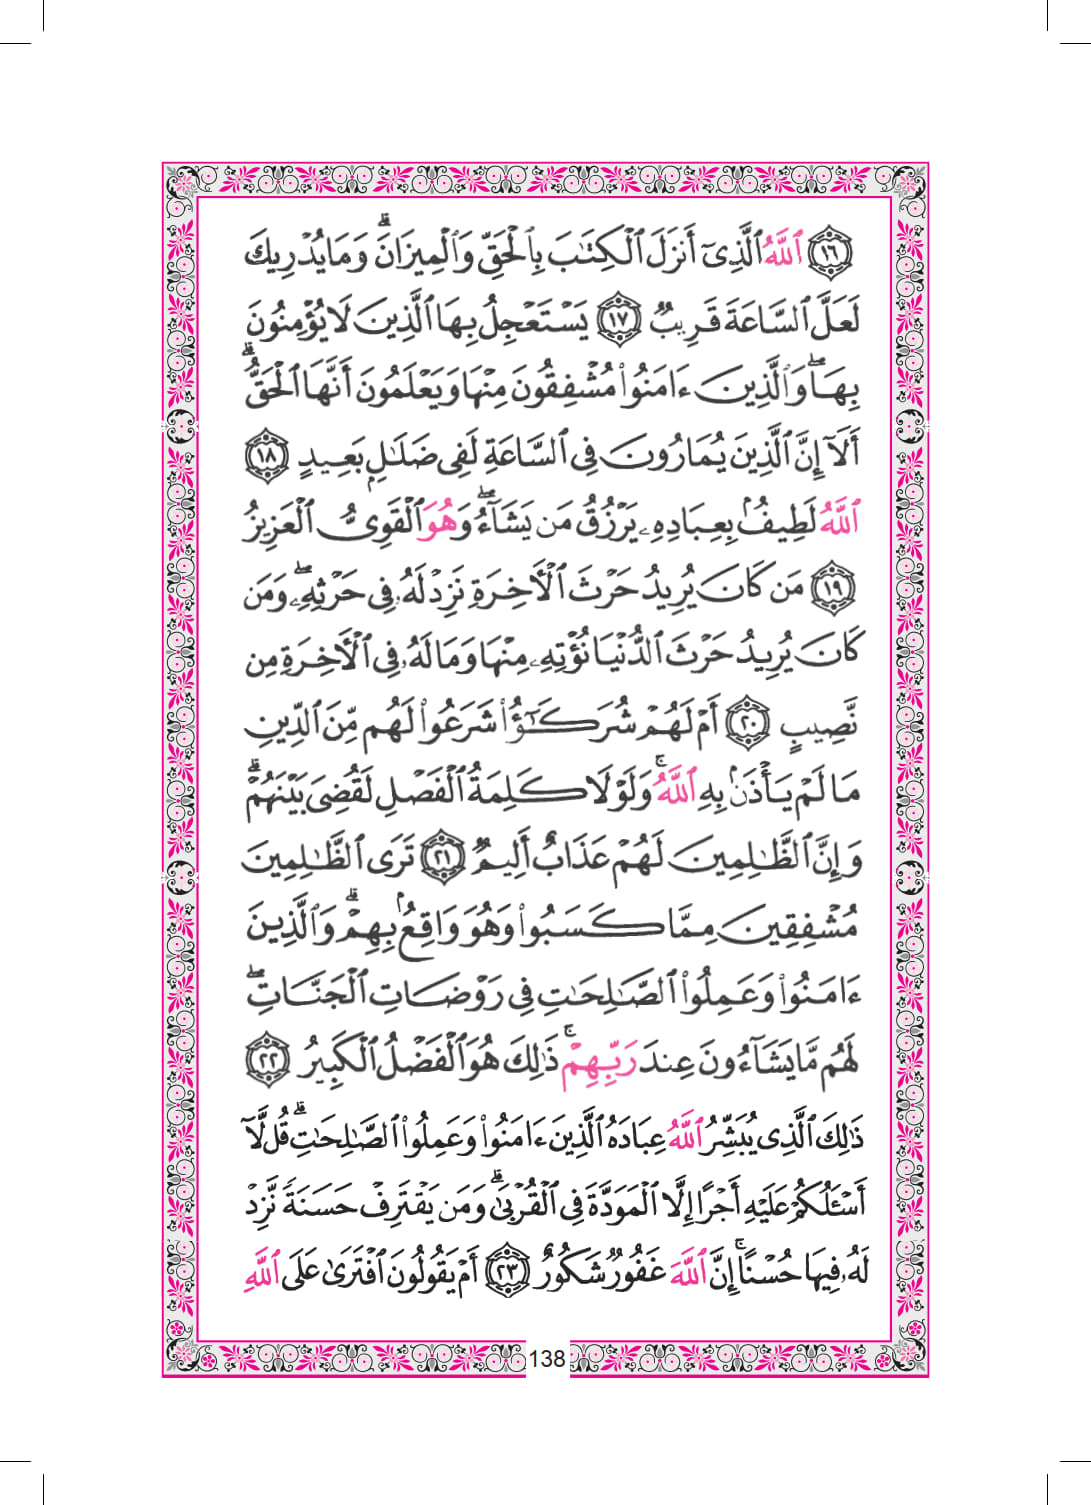 ﴿١٦﴾ ٱللَّهُ ٱلَّذِىٓ أَنزَلَ ٱلْكِتَٰبَ بِٱلْحَقِّ وَٱلْمِيزَانَ ۗ وَمَا يُدْرِيكَ
لَعَلَّ ٱلسَّاعَةَ قَرِيبٌ ﴿١٧﴾ يَسْتَعْجِلُ بِهَا ٱلَّذِينَ لَا يُؤْمِنُونَ
بِهَا ۖ وَٱلَّذِينَ ءَامَنُوا۟ مُشْفِقُونَ مِنْهَا وَيَعْلَمُونَ أَنَّهَا ٱلْحَقُّ ۗ
أَلَآ إِنَّ ٱلَّذِينَ يُمَارُونَ فِى ٱلسَّاعَةِ لَفِى ضَلَٰلٍۭ بَعِيدٍ ﴿١٨﴾
ٱللَّهُ لَطِيفٌۢ بِعِبَادِهِۦ يَرْزُقُ مَن يَشَآءُ ۖ وَهُوَ ٱلْقَوِىُّ ٱلْعَزِيزُ
﴿١٩﴾ مَن كَانَ يُرِيدُ حَرْثَ ٱلْءَاخِرَةِ نَزِدْ لَهُۥ فِى حَرْثِهِۦ ۖ وَمَن
كَانَ يُرِيدُ حَرْثَ ٱلدُّنْيَا نُؤْتِهِۦ مِنْهَا وَمَا لَهُۥ فِى ٱلْءَاخِرَةِ مِن
نَّصِيبٍ ﴿٢٠﴾ أَمْ لَهُمْ شُرَكَٰٓؤُا۟ شَرَعُوا۟ لَهُم مِّنَ ٱلدِّينِ
مَا لَمْ يَأْذَنۢ بِهِ ٱللَّهُ ۚ وَلَوْلَا كَلِمَةُ ٱلْفَصْلِ لَقُضِىَ بَيْنَهُمْ ۗ
وَإِنَّ ٱلظَّٰلِمِينَ لَهُمْ عَذَابٌ أَلِيمٌ ﴿٢١﴾ تَرَى ٱلظَّٰلِمِينَ
مُشْفِقِينَ مِمَّا كَسَبُوا۟ وَهُوَ وَاقِعٌۢ بِهِمْ ۗ وَٱلَّذِينَ
ءَامَنُوا۟ وَعَمِلُوا۟ ٱلصَّٰلِحَٰتِ فِى رَوْضَاتِ ٱلْجَنَّاتِ ۖ
لَهُم مَّا يَشَآءُونَ عِندَ رَبِّهِمْ ۚ ذَٰلِكَ هُوَ ٱلْفَضْلُ ٱلْكَبِيرُ ﴿٢٢﴾
ذَٰلِكَ ٱلَّذِى يُبَشِّرُ ٱللَّهُ عِبَادَهُ ٱلَّذِينَ ءَامَنُوا۟ وَعَمِلُوا۟ ٱلصَّٰلِحَٰتِ ۗ قُل لَّآ
أَسْـَٔلُكُمْ عَلَيْهِ أَجْرًا إِلَّا ٱلْمَوَدَّةَ فِى ٱلْقُرْبَىٰ ۗ وَمَن يَقْتَرِفْ حَسَنَةً نَّزِدْ
لَهُۥ فِيهَا حُسْنًا ۚ إِنَّ ٱللَّهَ غَفُورٌ شَكُورٌ ﴿٢٣﴾ أَمْ يَقُولُونَ ٱفْتَرَىٰ عَلَى ٱللَّهِ
138